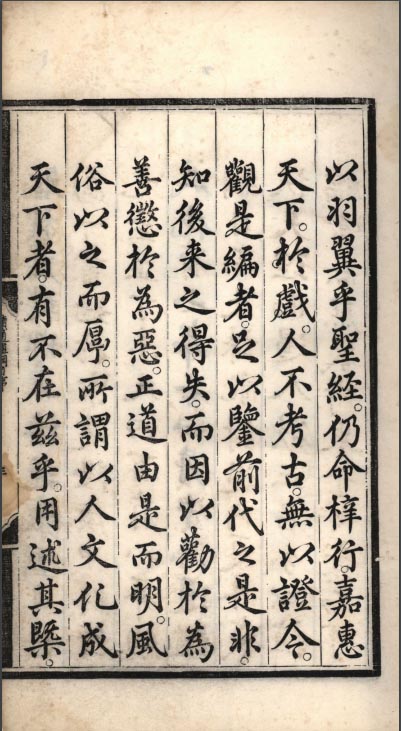 以羽翼乎聖經。仍命梓行。嘉惠
天下。於戲。人不考古。無以證今。
觀是編者。足以鑒前代之是非。
知後来之得失。而因以勸於為
善懲於為惡。正道由是而明。風
俗以之而厚。所謂以人文化成
天下者。有不在茲乎。用述其槩。